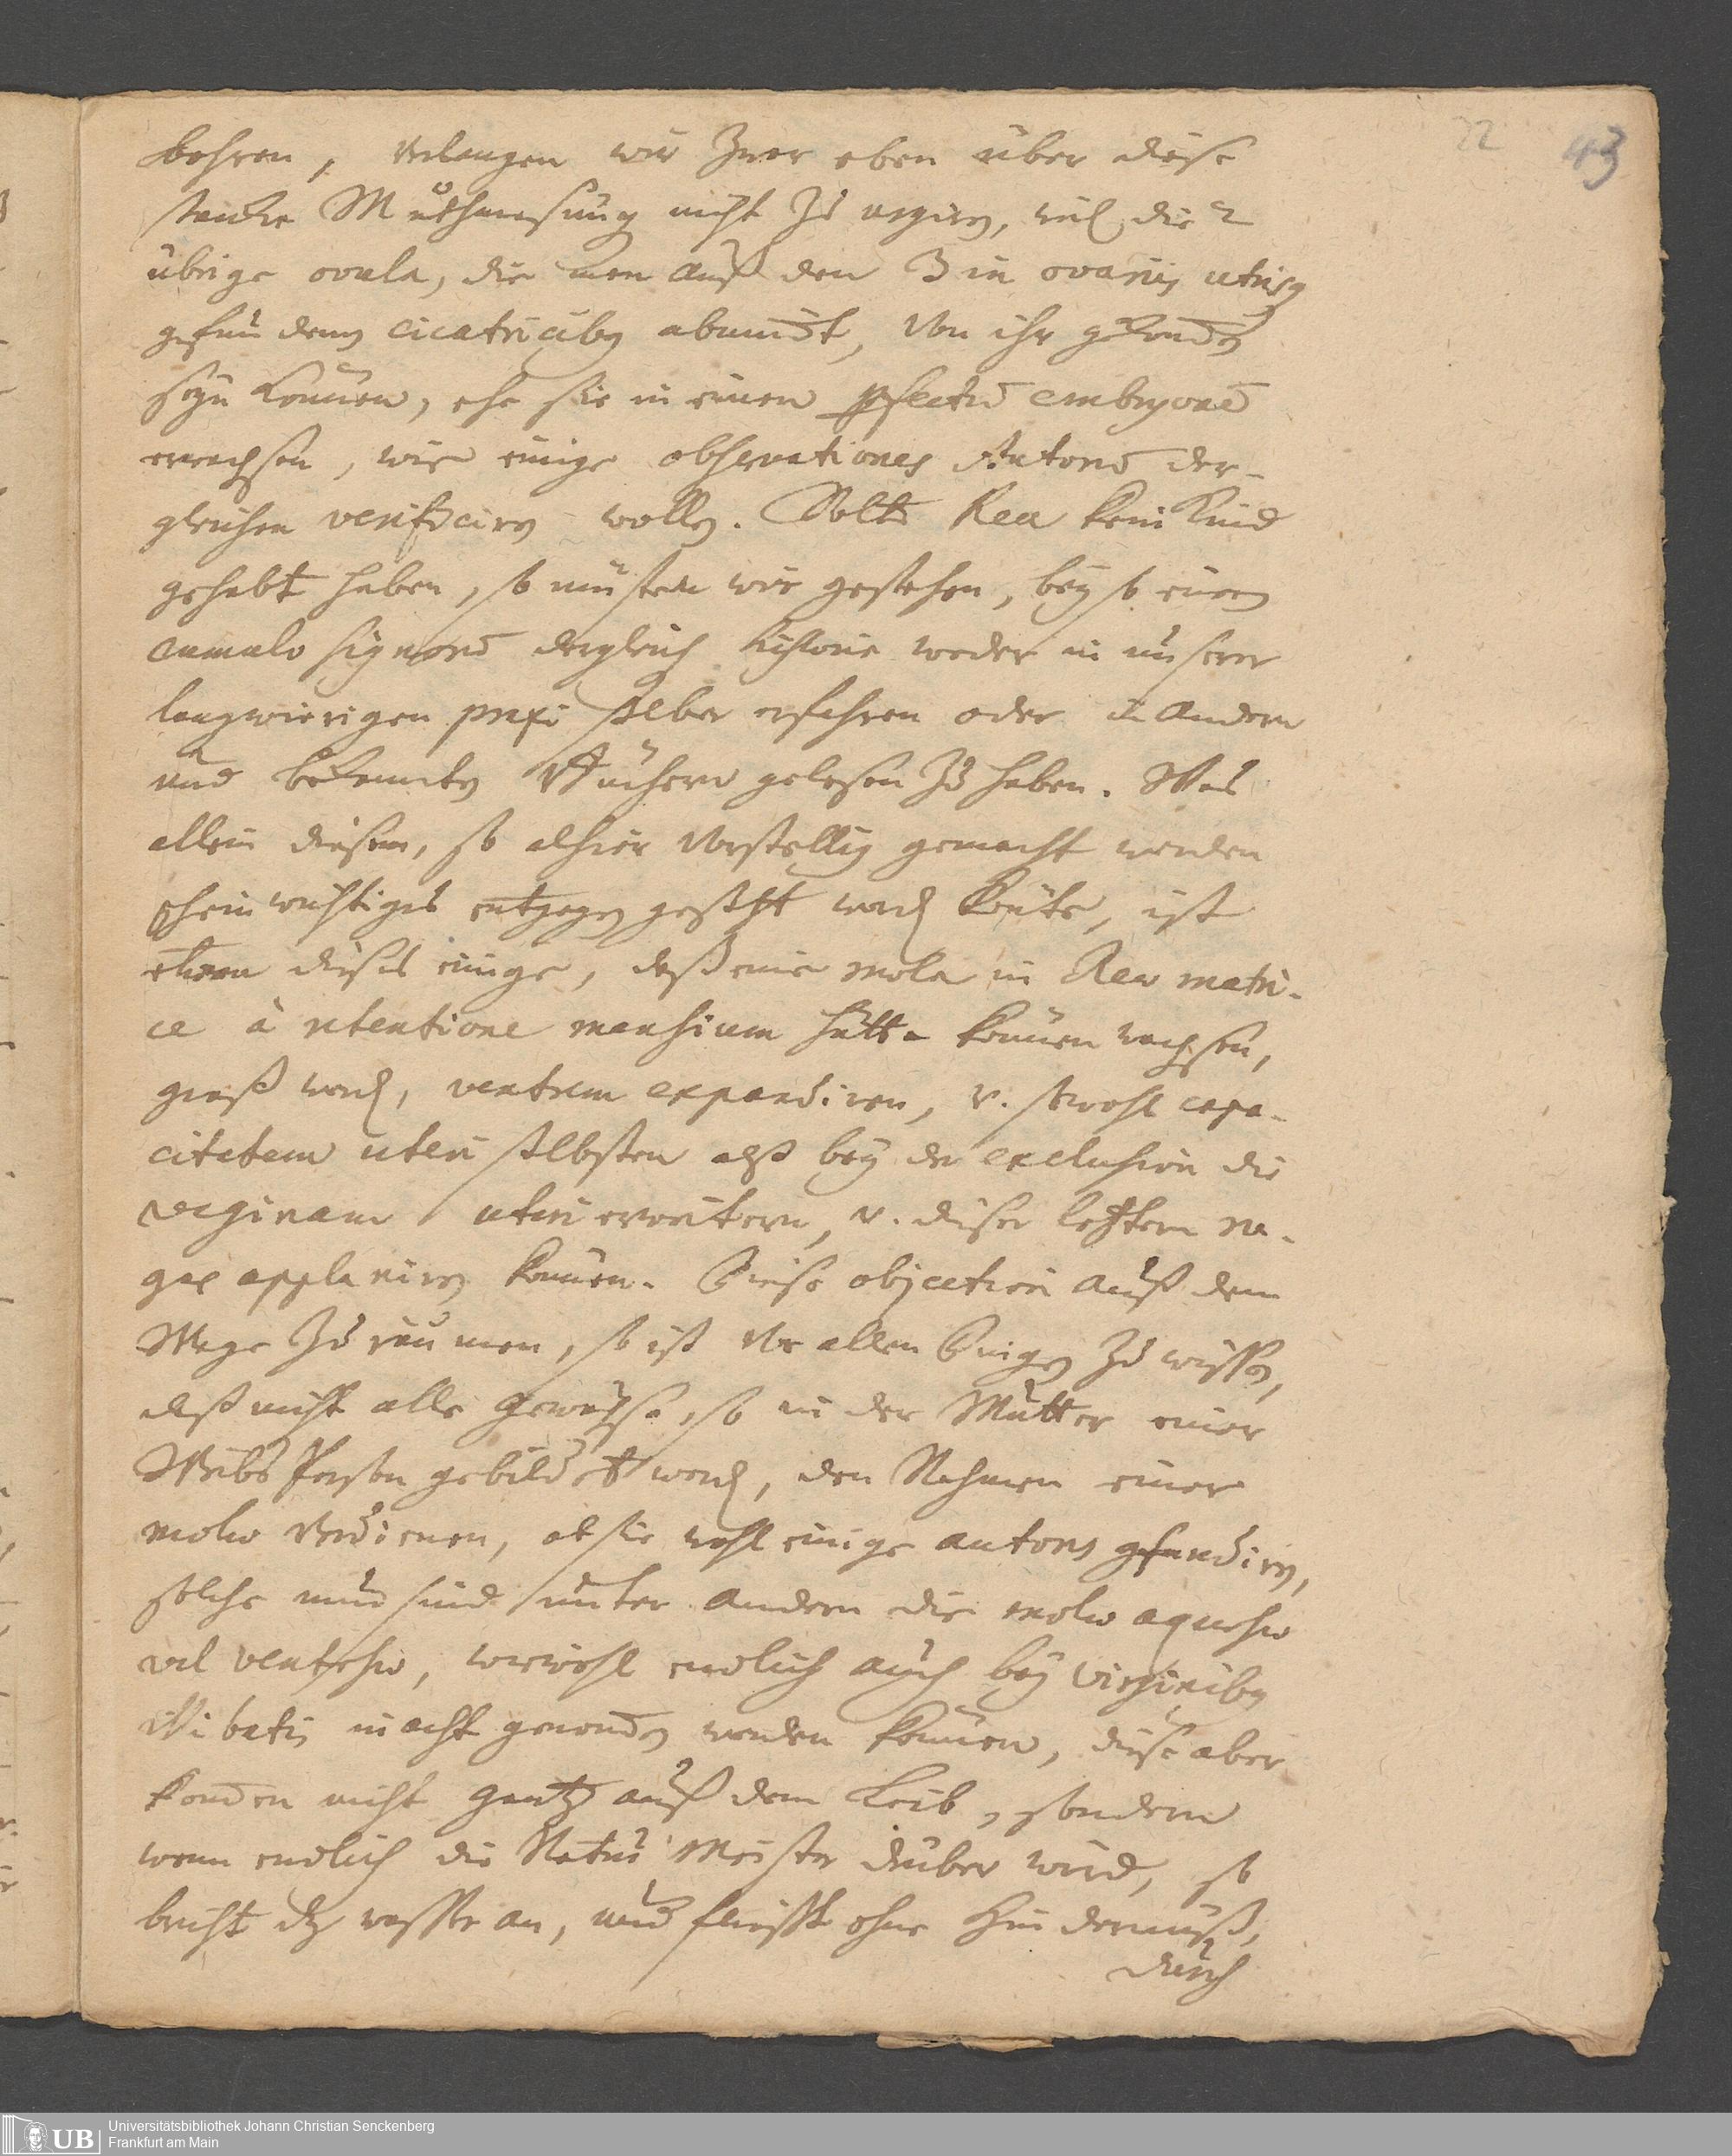 22 43
bohren, verlangen wir zwar eben über diese
starcke Muthmasung nicht zu negiren, weil die 2
übrige ovula, die man auß den 3 in ovariis utrisq
gefundenen cicatricibus abnimt, von ihr gekommen
seyn können, ehe sie in einen perfectum embryonem
erwachsen, wie einige observationes Autorum der-
gleichen verificiren wollen. Solte Rea kein Kind
gehabt haben, so müsten wir gestehen, bey so einem
cumulo signorum dergleichen historie weder in unserer
langwierigen praxi selber erfahren oder in andern
uns bekannten Büchern gelesen zu haben. Was
allein diesem, so alhier vorstellig gemacht worden
schein wichtiges entgegen gesetzt werden könte, ist
etwan dieses einige, daß eine mola in Reae matri-
ce à retentione mensium hätte können wachsen,
groß werden, ventrem expandiren, v. sowohl capa-
citatem uteri selbsten alß bey der exclusion die
vaginam uteri erweitern, v. dieser letztern ru-
gas applaniren können. Diese objection auß dem
Wege zu räumen, so ist vor allen Dingen zu wissen,
daß nicht alle gewächse, so in der Mutter einer
Weibs Person gebildet werden, den Nahmen einer
molae verdienen, ob sie wohl einige autores
solche nun sind unter andern die molae aquosae
vel ventosae, wiewohl endlich auch bey virginibus
illibatis in acht genommen werden können, diese aber
kommen nicht gantz auß dem Leib, sondern
wenn endlich die Natur Meister drüber wird, so
bricht dz wasser an, und fliesst ohne Hindernüß,
durch
Universitätsbibliothek Johann Christian Senckenberg
Frankfurt am Main
UB